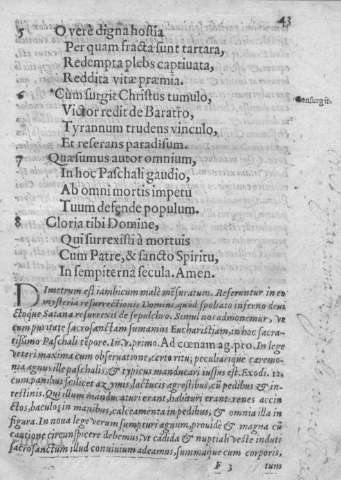 43
5 O verè digna hostia
Per quam fracta sunt tartara,
Redempta plebs captivata,
Reddita vitæ præmia.
6 *Cum surgit Christus tumulo, *Consurgit.
Victor redit de Baratro,
Tyrannum trudens vinculo,
Et reserans paradisum.
7 Quæsumus autor omnium,
In hoc Paschali gaudio,
Ab omni mortis impetu
Tuum defende populum.
8 Gloria tibi Domine,
Qui surrexisti à mortuis
Cum Patre, & sancto Spiritu,
In sempiterna secula. Amen.
Dimetrum est iambicum malè mēsuratum. Referuntur in eo
mysteria resurrectionis Domini, quod spoliato inferno deui
ctoque Satana resurrexit de sepulchro. Simul nos admonemur, ve
cum puritate sacrosanctam sumamus Eucharistiam, in hoc sacra-
tissimo Paschali tēpore. In .v. primo. Ad cœnam ag. pro. In lege
veteri maxima cum obseruatione, certo ritu, peculiarique ceremo-
nia agnus ille paschalis, & typicus manducari iussus est. Exodi. 12.
cum panibus scilicet azymis, lactucis agrestibus, cū pedibus & in-
testinis. Qui illum manducaturi erant, habituri erant renes accin
ctos, baculos in manibus, calceamenta in pedibus, & omnia illa in
figura. In noua lege verum sumpturi agnum, prouidè & magna cū
cautione circunspicere debemus, vt cādida & nuptiali veste induti
sacrosanctum illud conuiuium adeamus, summaque cum corporis,
F 3 tum